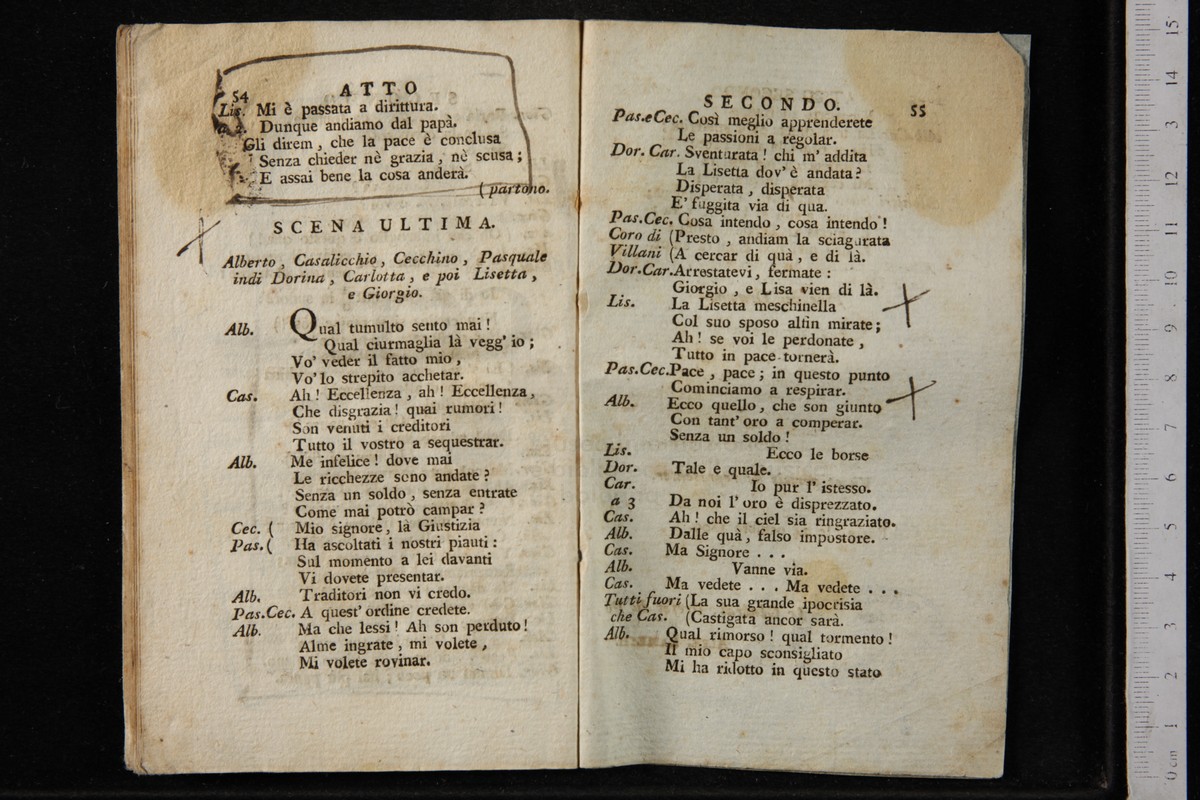 54
ATTO
Lis. Mi è passata a dirittura.
a 2. Dunque andiamo dal papà.
Gli direm, che la pace è conclusa
Senza chieder nè grazia, nè scusa;
E assai bene la cosa anderà.
(partono.
SCENA ULTIMA.
Alberto, Casalicchio, Cecchino, Pasquale
indi Dorina, Carlotta, e poi Lisetta,
e Giorgio.
Alb. Qual tumulto sento mai!
Qual ciurmaglia là vegg' io;
Vo' veder il fatto mio,
Vo' lo strepito acchetar.
Cas. Ah! Eccellenza, ah! Eccellenza,
Che disgrazia! quai rumori!
Son venuti i creditori
Tutto il vostro a sequestrar.
Alb. Me infelice! dove mai
Le ricchezze sono andate?
Senza un soldo, senza entrate
Come mai potrò campar?
Cec. ( Mio signore, là Giustizia
Pas. ( Ha ascoltati i nostri piauti:
Sul momento a lei davanti
Vi dovete presentar.
Alb. Traditori non vi credo.
Pas.Cec. A quest' ordine credete.
Alb. Ma che lessi! Ah son perduto!
Alme ingrate, mi volete,
Mi volete rovinar.
SECONDO. 55
Pas.e Cec. Così meglio apprenderete
Le passioni a regolar.
Dor. Car. Sventurata! chi m' addita
La Lisetta dov' è andata?
Disperata, disperata
E' fuggita via di qua.
Pas.Cec. Cosa intendo, cosa intendo!
Coro di (Presto, andiam la sciagurata
Villani (A cercar di quà, e di là.
Dor.Car. Arrestatevi, fermate:
Giorgio, e Lisa vien di là.
Lis. La Lisetta meschinella
Col suo sposo alfin mirate;
Ah! se voi le perdonate,
Tutto in pace tornerà.
Pas.Cec. Pace, pace; in questo punto
Cominciamo a respirar.
Alb. Ecco quello, che son giunto
Con tant' oro a comperar.
Senza un soldo!
Lis. Ecco le borse
Dor. Tale e quale.
Car. Io pur l' istesso.
a 3 Da noi l' oro è disprezzato.
Cas. Ah! che il ciel sia ringraziato.
Alb. Dalle quà, falso impostore.
Cas. Ma Signore . . .
Alb. Vanne via.
Cas. Ma vedete . . . Ma vedete . . .
Tutti fuori (La sua grande ipocrisia
che Cas. (Castigata ancor sarà.
Alb. Qual rimorso! qual tormento!
Il mio capo sconsigliato
Mi ha ridotto in questo stato
15
14
13
12
11
10
9
8
7
6
5
4
3
2
1
0 cm